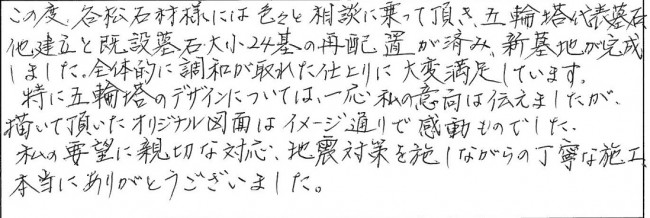 この度、各松石材様には色々と相談に乗って頂き、五輪塔代表墓石
他建立と既設墓石大小24基の再配置が済み、新墓地が完成
しました。全体的に調和が取れた仕上りに大変満足しています。
特に五輪塔のデザインについては、一応私の意向は伝えましたが、
描いて頂いたオリジナル図面はイメージ通りで感動ものでした。
私の要望に親切な対応、地震対策を施しながらの丁寧な施工、
本当にありがとうございました。